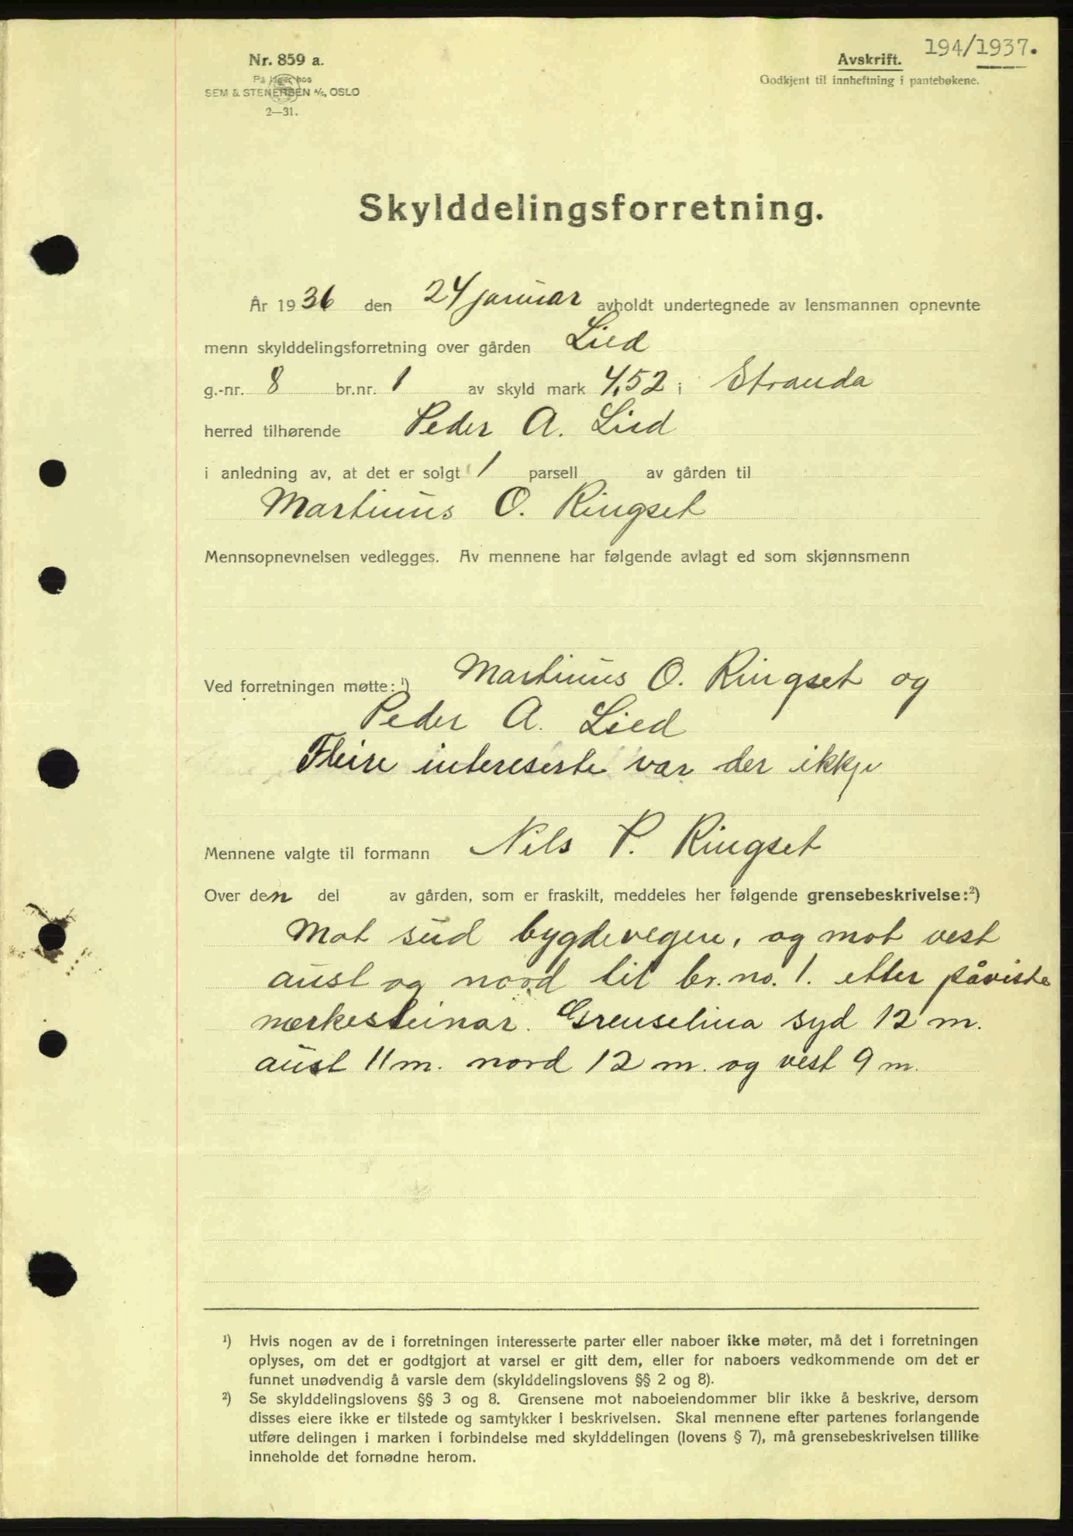 194/1937.
Nr. 859 a.
På lager hos
SEM & STENERSEN A/S, OSLO
2—31.
Avskrift.
Godkjent til innheftning i pantebøkene.
Skylddelingsforretning.
År 1936 den 24 januar avholdt undertegnede av lensmannen opnevnte
menn skylddelingsforretning over gården Lied
g.-nr. 8 br.nr. 1 av skyld mark 4,52 i Stranda
herred tilhørende Peder A. Lied
i anledning av, at det er solgt 1 parsell av gården til
Martinus O. Ringset
Mennsopnevnelsen vedlegges. Av mennene har følgende avlagt ed som skjønnsmenn
Ved forretningen møtte: ¹) Martinus O. Ringset og
Peder A. Lied
Fleire intereserte var der ikkje
Mennene valgte til formann Nils P. Ringset
Over den del av gården, som er fraskilt, meddeles her følgende grensebeskrivelse:²)
Mot sud bygdevegen, og mot vest
aust og nord til br.no. 1. etter påviste
merkesteinar. Grenselina syd 12 m.
aust 11 m. nord 12 m. og vest 9 m.
¹) Hvis nogen av de i forretningen interesserte parter eller naboer ikke møter, må det i forretningen
oplyses, om det er godtgjort at varsel er gitt dem, eller for naboers vedkommende om det er
funnet unødvendig å varsle dem (skylddelingslovens §§ 2 og 8).
²) Se skylddelingslovens §§ 3 og 8. Grensene mot naboeiendommer blir ikke å beskrive, dersom
disses eiere ikke er tilstede og samtykker i beskrivelsen. Skal mennene efter partenes forlangende
utføre delingen i marken i forbindelse med skylddelingen (lovens § 7), må grensebeskrivelsen tillike
inneholde det fornødne herom.